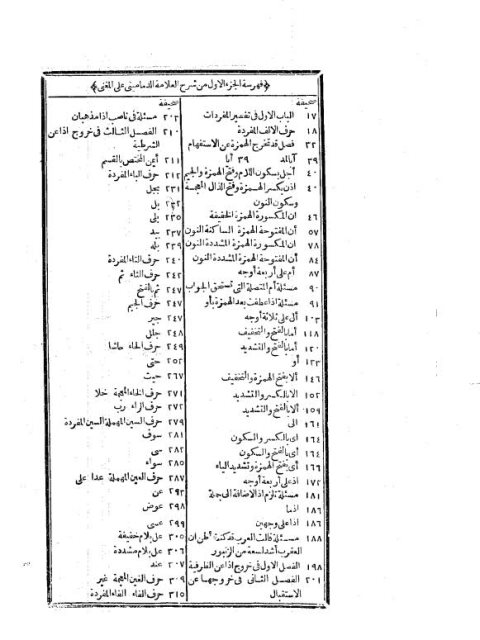 ﴿فهرسة الجزء الاول من شرح العلامة الدمامينى على المغنى﴾
صحيفة
١٧ الباب الاول فى تفسير المفردات
١٨ حرف الالف المفردة
٣٢ فصل قد تخرج الهمزة عن الاستفهام
٣٩ آبالله ٣٩ أيا
٤٠ أجل بسكون اللام وفتح الهمزة والجيم
٤٠ اذن بكسر الهمزة وفتح الذال المعجمة وسكون النون
٤٦ ان المكسورة الهمزة الخفيفة
٥٧ ان المفتوحة الهمزة الساكنة النون
٧٨ ان المكسورة الهمزة المشددة النون
٨٤ أن المفتوحة الهمزة المشددة النون
٨٧ أم على أربعة أوجه
٩٠ مسئلة أم المتصلة التى تستحق الجواب
٩١ مسئلة اذا عطفت بعد الهمزة بأو
١٠٣ أل على ثلاثة أوجه
١١٨ أما بالفتح والتخفيف
١٢٠ أما بالفتح والتشديد
١٣٣ أو
١٤٦ ألا بفتح الهمزة والتخفيف
١٥٢ الا بالكسر والتشديد
١٥٩ ألا بالفتح والتشديد
١٦١ الى
١٦٤ اى بالكسر والسكون
١٦٤ أى بالفتح والسكون
١٦٦ أى بفتح الهمزة وتشديد الياء
١٧٢ اذ على أربعة أوجه
١٨١ مسئلة تلزم اذ الاضافة الى جملة
١٨٦ اذما
١٨٦ اذا على وجهين
١٨٨ مسئلة قالت العرب قد كنت أظن ان العقرب أشد لسعة من الزنبور
١٩٨ الفصل الاول فى خروج اذا عن الظرفية
٢٠١ الفصل الثانى فى خروجها عن الاستقبال
صحيفة
٢٠٢ مسئلة فى ناصب اذا مذهبان
٢١٠ الفصل الثالث فى خروج اذا عن الشرطية
٢١١ أيمن المختص بالقسم
٢١٢ حرف الباء المفردة
٢٣١ بجل
٢٣٢ بل
٢٣٥ بلى
٢٣٧ بيد
٢٣٩ بله
٢٤٠ حرف التاء المفردة
٢٤٢ حرف الثاء ثم
٢٤٧ ثم بالفتح
٢٤٧ حرف الجيم
٢٤٧ جير
٢٤٨ جلل
٢٤٩ حرف الحاء حاشا
٢٥٢ حتى
٢٦٧ حيث
٢٧١ حرف الخاء المعجمة خلا
٢٧٢ حرف الراء رب
٢٧٩ حرف السين المهملة السين المفردة
٢٨١ سوف
٢٨٢ سى
٢٨٥ سواء
٢٨٧ حرف العين المهملة عدا على
٢٩٢ عن
٢٩٨ عوض
٢٩٩ عسى
٣٠٥ عل بلام خفيفة
٣٠٦ عل بلام مشددة
٣٠٧ عند
٣٠٩ حرف الغين المعجمة غير
٣١٥ حرف الفاء الفاء المفردة